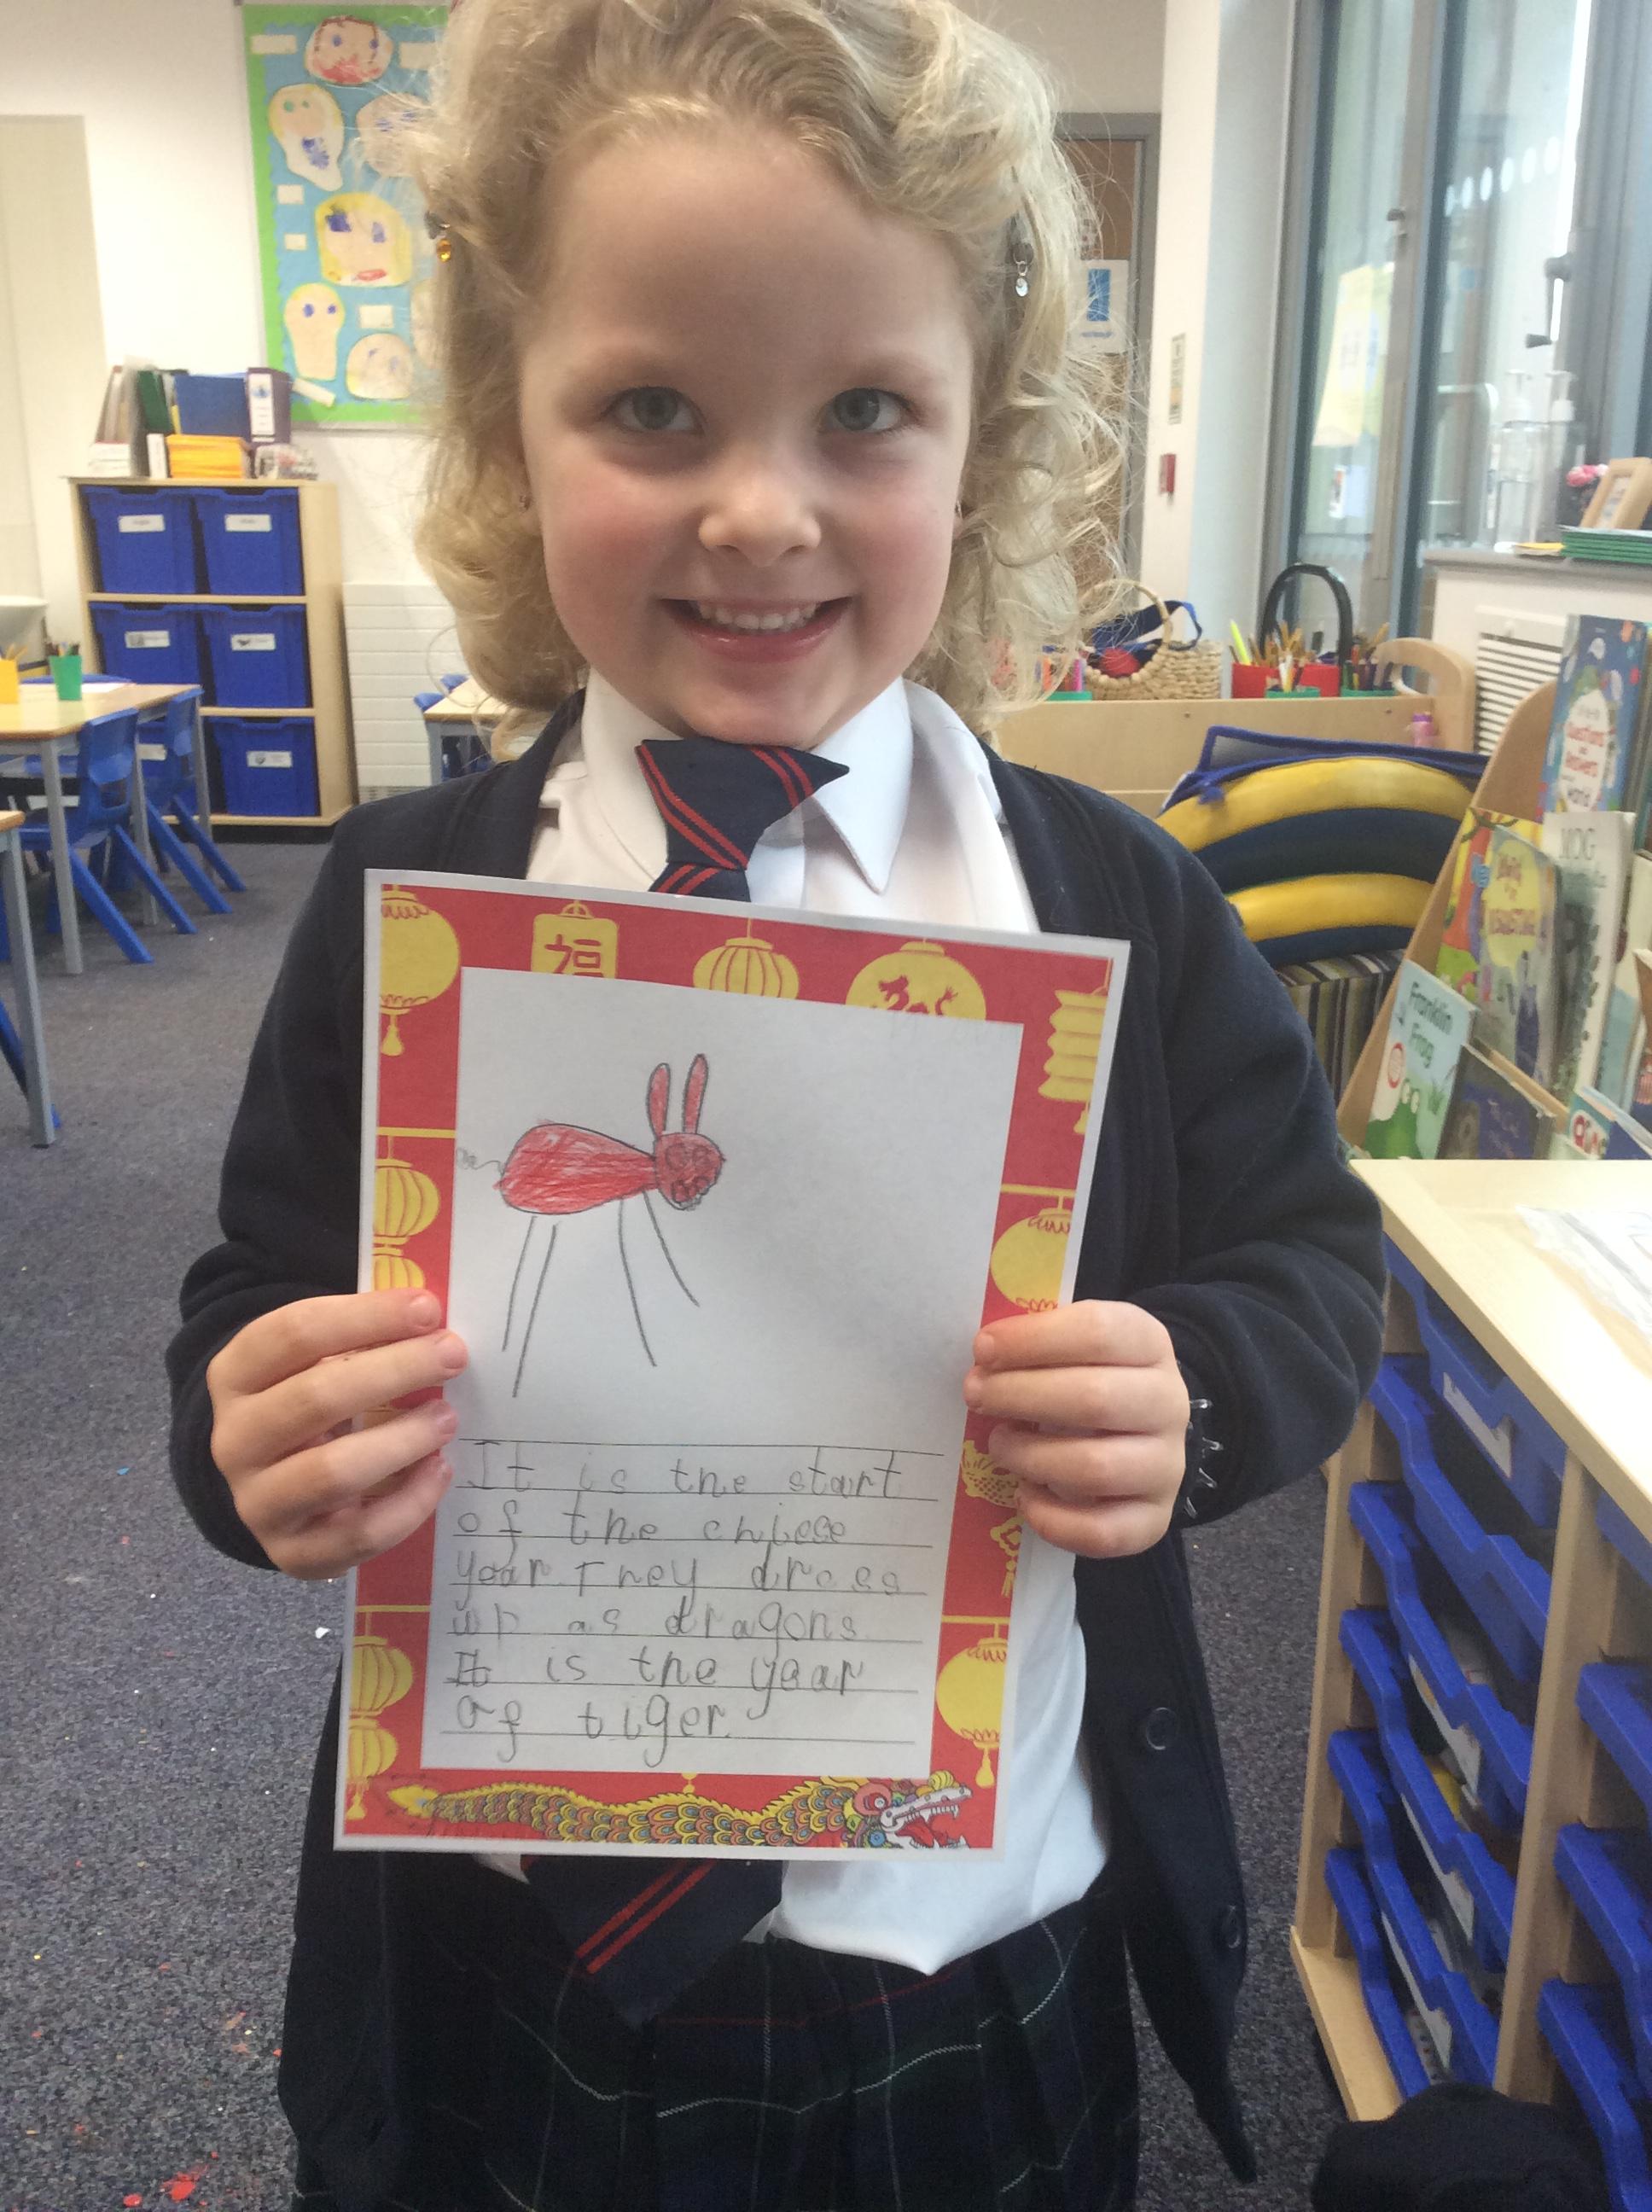 福
It is the start
of the chiese
year They dress
up as dragons.
It is the year
of tiger.
Franklin
Frog
Questions
and
Answers
World